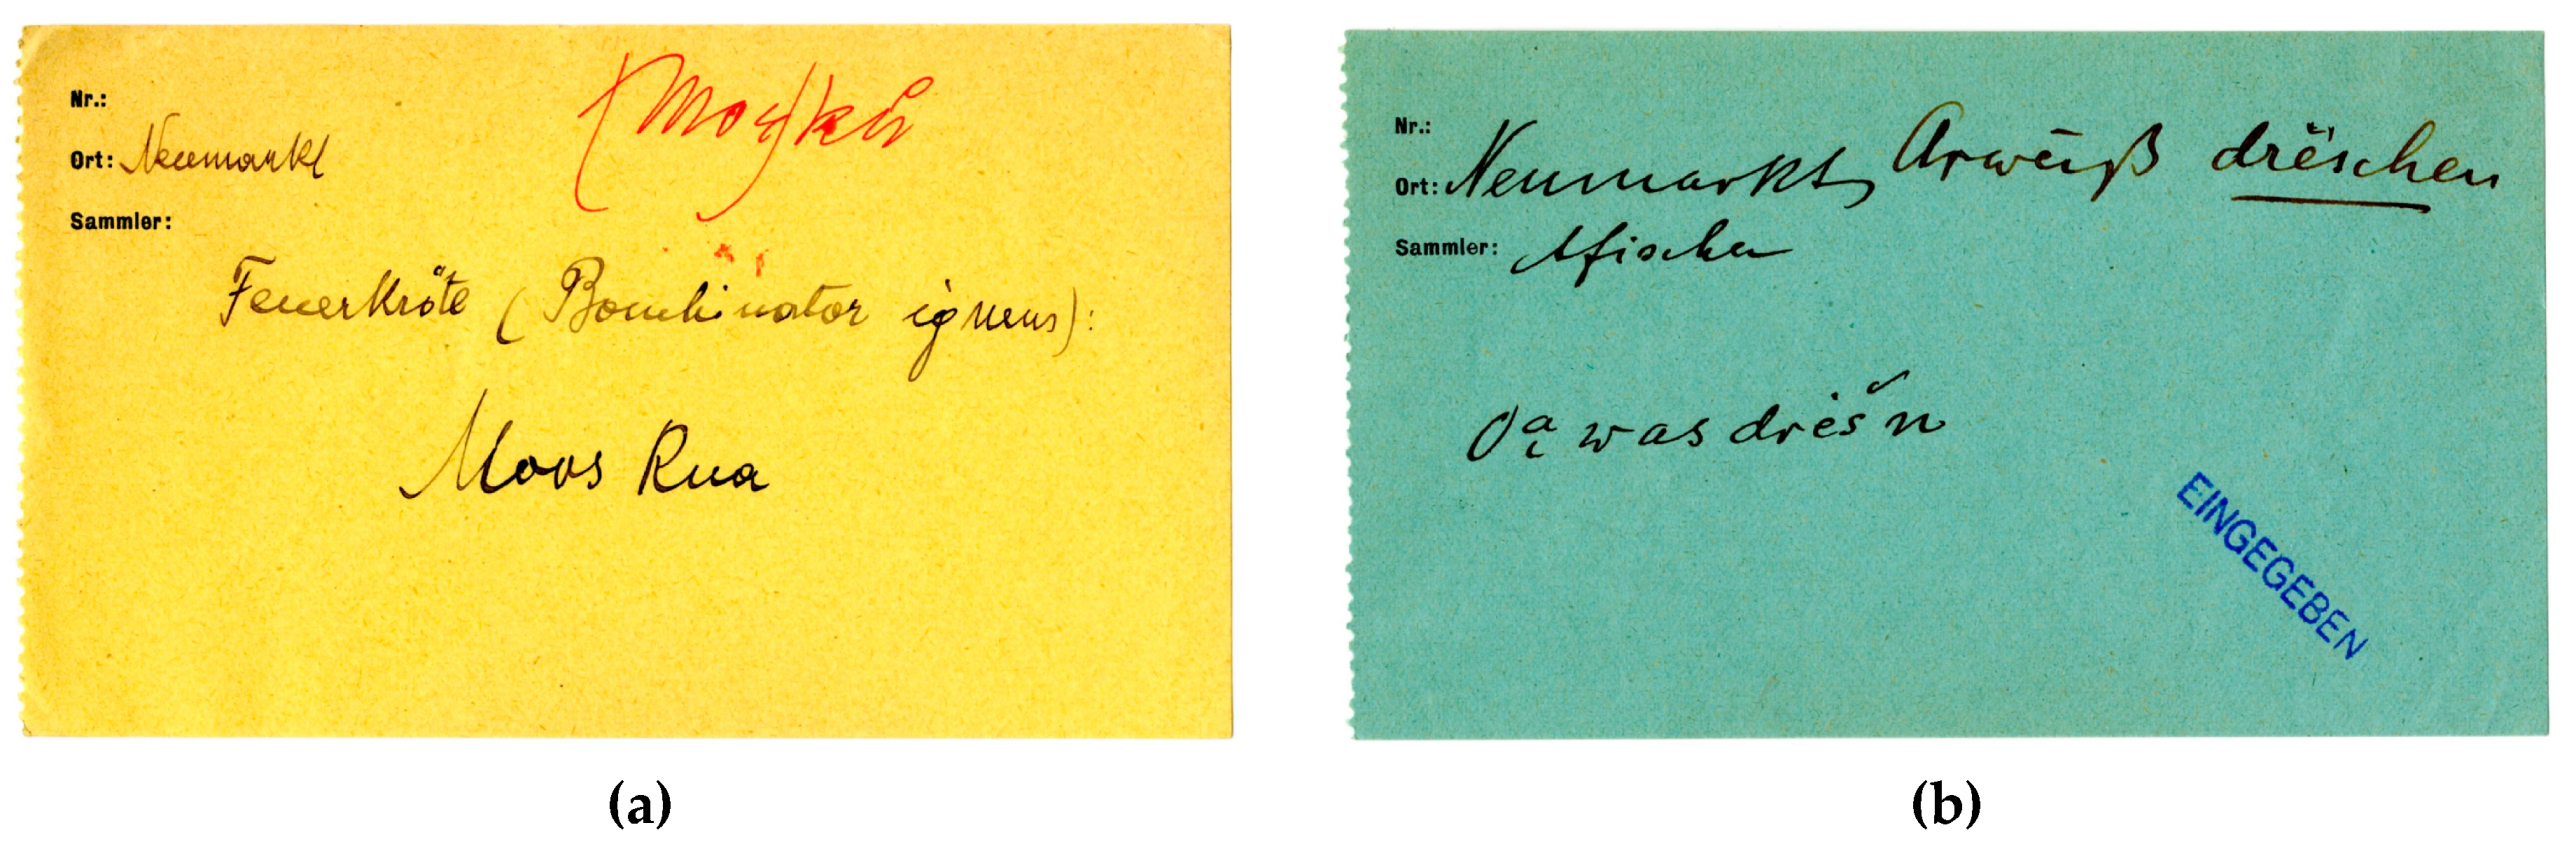 Nr.:
Ort: Neumarkt
Sammler:
(Moos)
Feuerkröte (Bombinator igneus):
Moos Kua
(a)
Nr.:
Ort: Neumarkt, Arwēiß drëschen
Sammler: Afischer
was drėš'n
EINGEGEBEN
(b)